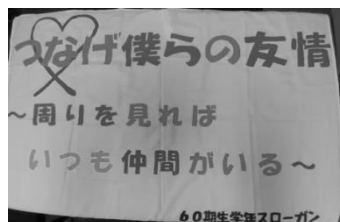 つなげ僕らの友情
～周りを見れば
いつも仲間がいる～
60期生学年スローガン